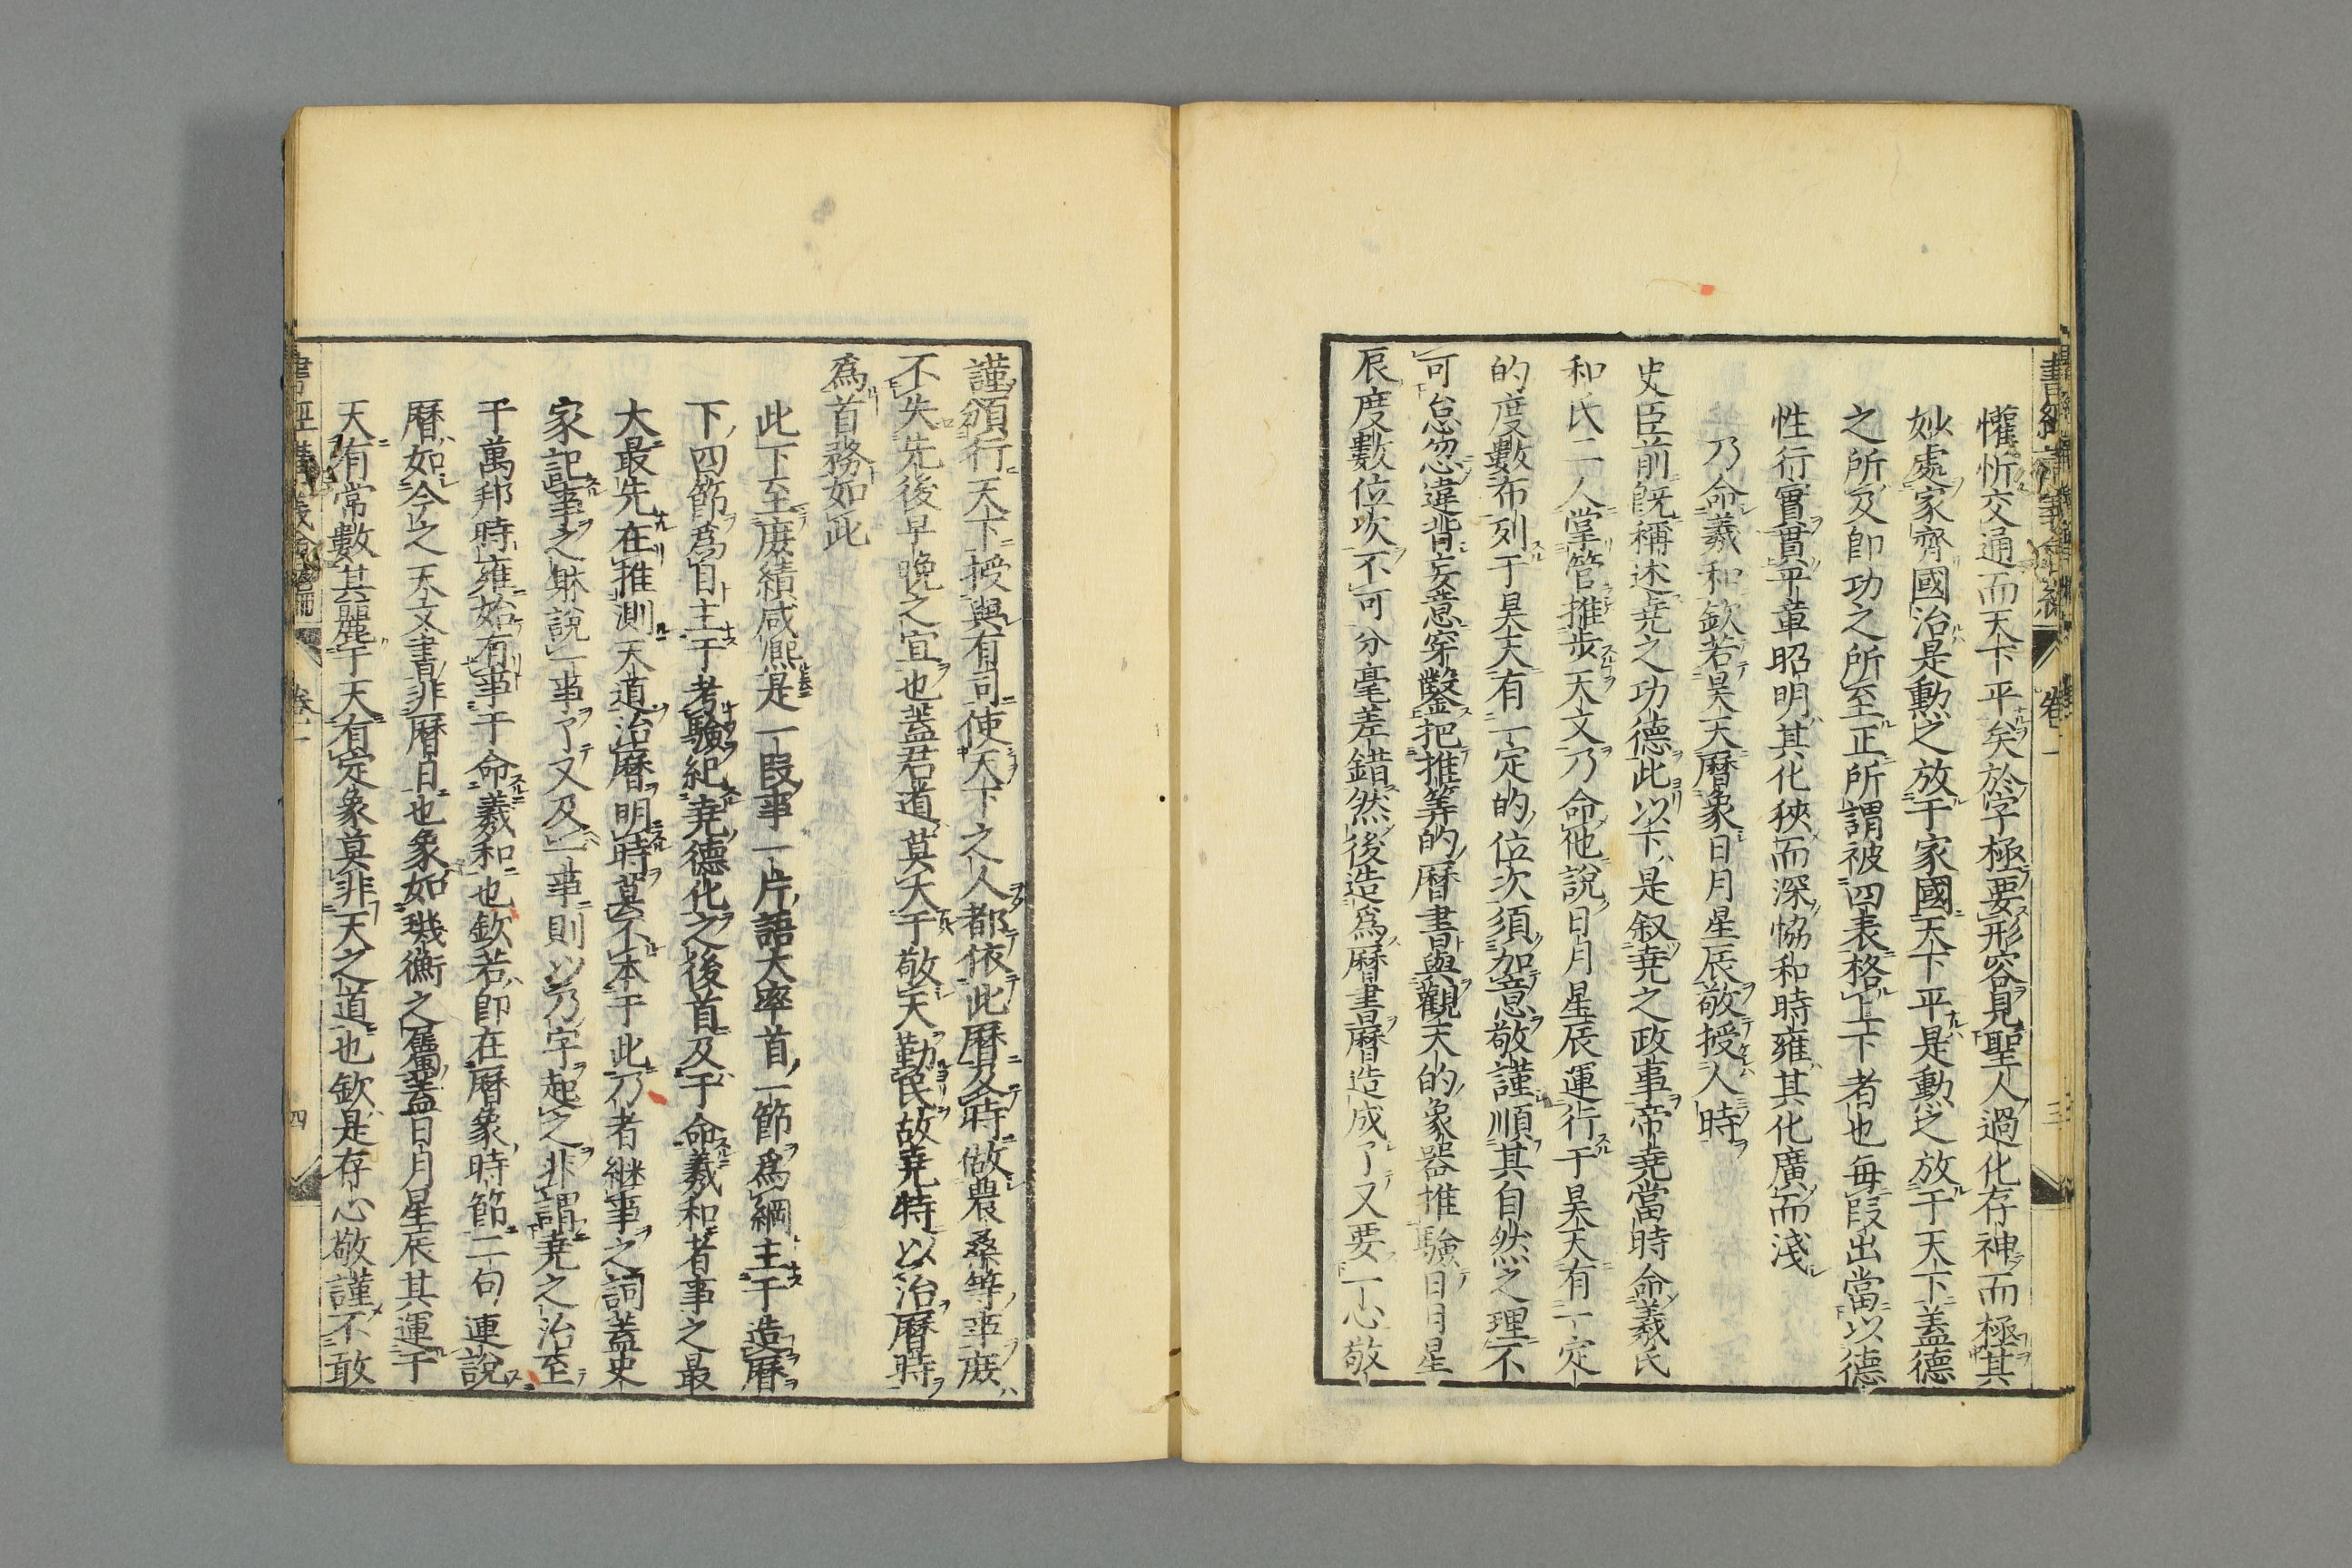 書經講義會編 卷一 三
懽忻交通而天下平矣於字極要形容見聖人過化存神而極其
妙處家齊國治是勲之放于家國天下平是勲之放于天下蓋德
之所及即功之所至正所謂被四表格上下者也毎段出當以德
性行實貫平章昭明其化狹而深恊和時雍其化廣而淺
乃命羲和欽若昊天曆象日月星辰敬授人時
史臣前既稱述堯之功德此以下是叙堯之政事帝堯當時命羲氏
和氏二人掌管推步天文乃命他說日月星辰運行于昊天有一定
的度數布列于昊天有一定的位次須加意敬謹順其自然之理不
可怠忽違背妄意穿鑿把推筭的曆書與觀天的象器推驗日月星
辰度數位次不可分毫差錯然後造爲曆書曆造成了又要一心敬
謹頒行天下授與有司使天下之人都依此曆及時做農桑等事庻
不失先後早晚之宜也蓋君道莫大于敬天勤民故堯特以治曆時
爲首務如此
此下至庻績咸熈是一段事一片語大率首一節爲綱主于造曆
下四節爲目主于考驗紀堯德化之後首及于命羲和者事之最
大最先在推測天道治曆明時莫不本于此乃者継事之詞蓋史
家記事之躰說一事了又及一事則以乃字起之非謂堯之治至
于萬邦時雍始有事于命羲和也欽若即在曆象時節二句連說
曆如今之天文書非曆日也象如璣衡之屬蓋日月星辰其運于
天有常數其麗于天有定象莫非天之道也欽是存心敬謹不敢
書經講義會編 卷一 四